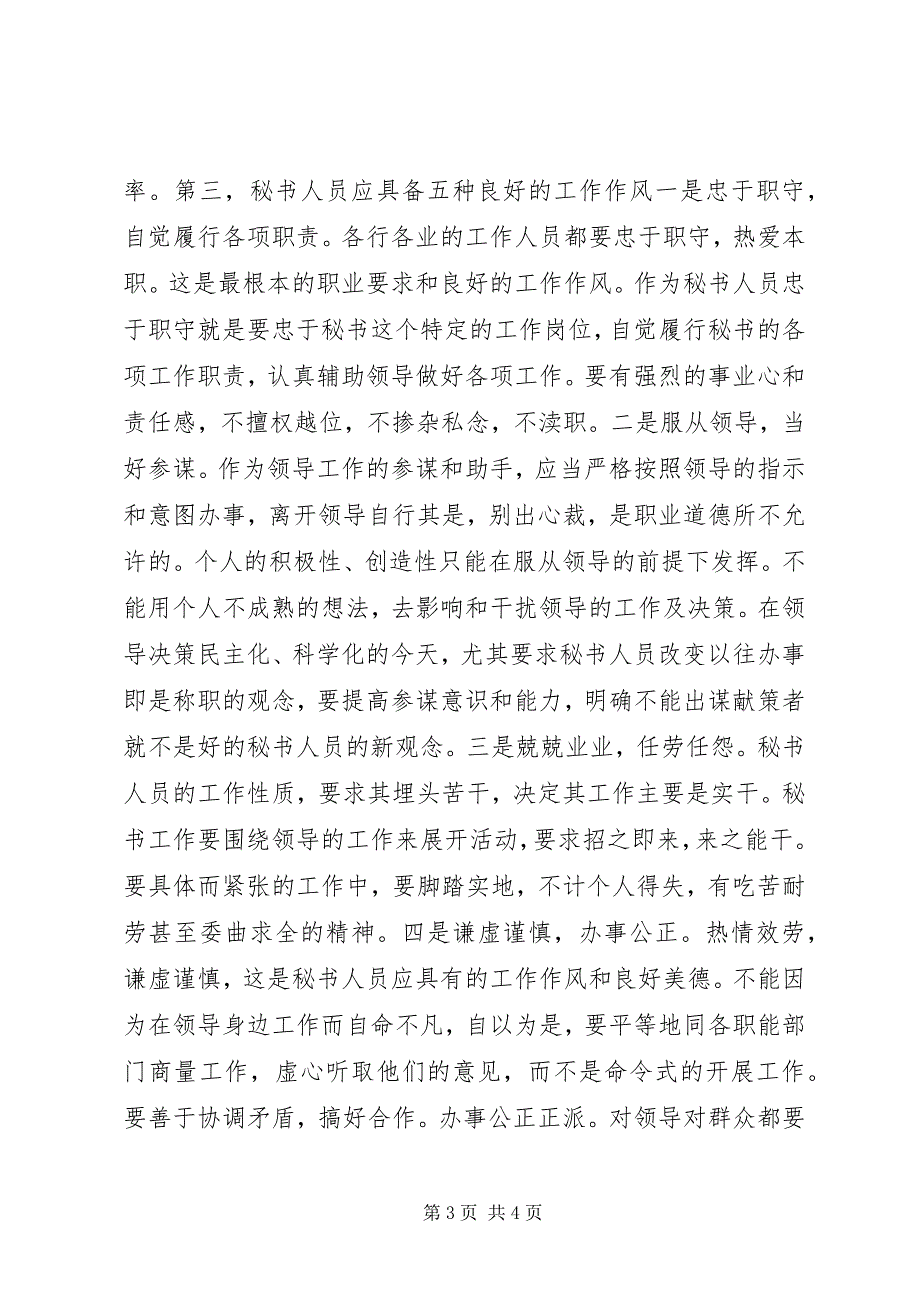 率。第三，秘书人员应具备五种良好的工作作风一是忠于职守，
自觉履行各项职责。各行各业的工作人员都要忠于职守，热爱本
职。这是最根本的职业要求和良好的工作作风。作为秘书人员忠
于职守就是要忠于秘书这个特定的工作岗位，自觉履行秘书的各
项工作职责，认真辅助领导做好各项工作。要有强烈的事业心和
责任感，不擅权越位，不掺杂私念，不渎职。二是服从领导，当
好参谋。作为领导工作的参谋和助手，应当严格按照领导的指示
和意图办事，离开领导自行其是，别出心裁，是职业道德所不允
许的。个人的积极性、创造性只能在服从领导的前提下发挥。不
能用个人不成熟的想法，去影响和干扰领导的工作及决策。在领
导决策民主化、科学化的今天，尤其要求秘书人员改变以往办事
即是称职的观念，要提高参谋意识和能力，明确不能出谋献策者
就不是好的秘书人员的新观念。三是兢兢业业，任劳任怨。秘书
人员的工作性质，要求其埋头苦干，决定其工作主要是实干。秘
书工作要围绕领导的工作来展开活动，要求招之即来，来之能干。
要具体而紧张的工作中，要脚踏实地，不计个人得失，有吃苦耐
劳甚至委曲求全的精神。四是谦虚谨慎，办事公正。热情效劳，
谦虚谨慎，这是秘书人员应具有的工作作风和良好美德。不能因
为在领导身边工作而自命不凡，自以为是，要平等地同各职能部
门商量工作，虚心听取他们的意见，而不是命令式的开展工作。
要善于协调矛盾，搞好合作。办事公正正派。对领导对群众都要
第 3 页 共 4 页